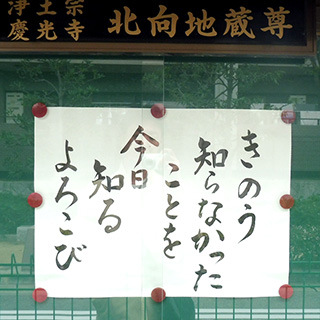 浄土宗
慶光寺
北向地蔵尊
きのう
知らなかった
ことを
今日
知る
よろこび